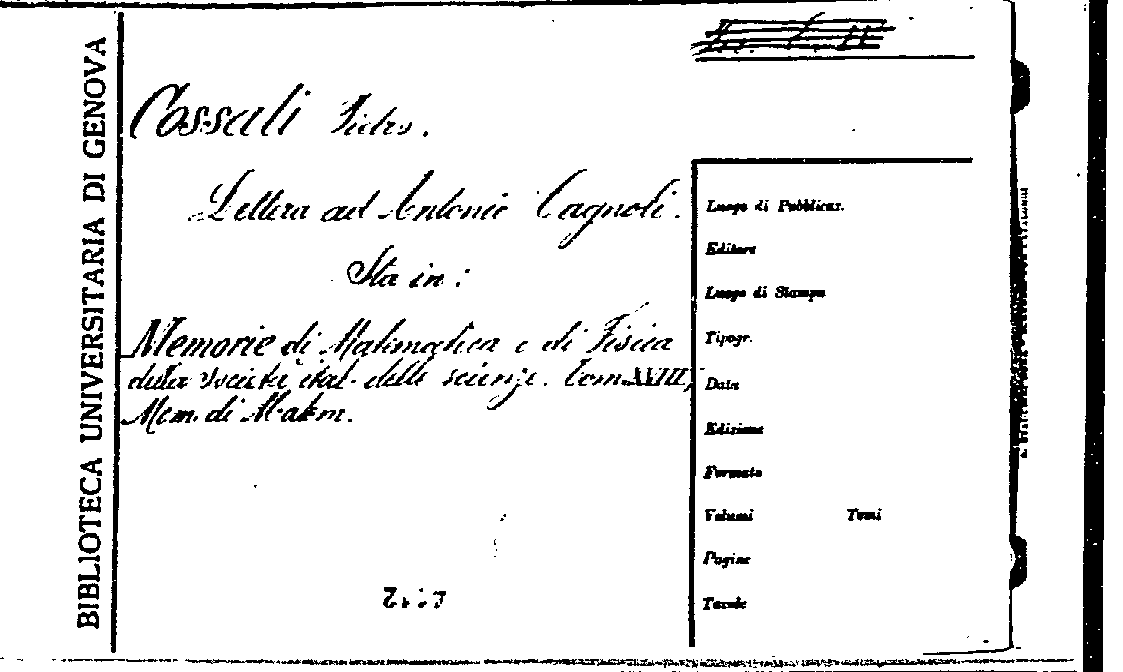 BIBLIOTECA UNIVERSITARIA DI GENOVA
Cossali Pietro.
Lettera ad Antonio Cagnoli.
Sta in:
Memorie di Matematica e di Fisica
della Società ital. delle scienze. Tom. XVIII,
Mem. di Matem.
Luogo di Pubblicaz.
Editore
Luogo di Stampa
Tipogr.
Data
Edizione
Formato
Volumi Tomi
Pagine
Tavole